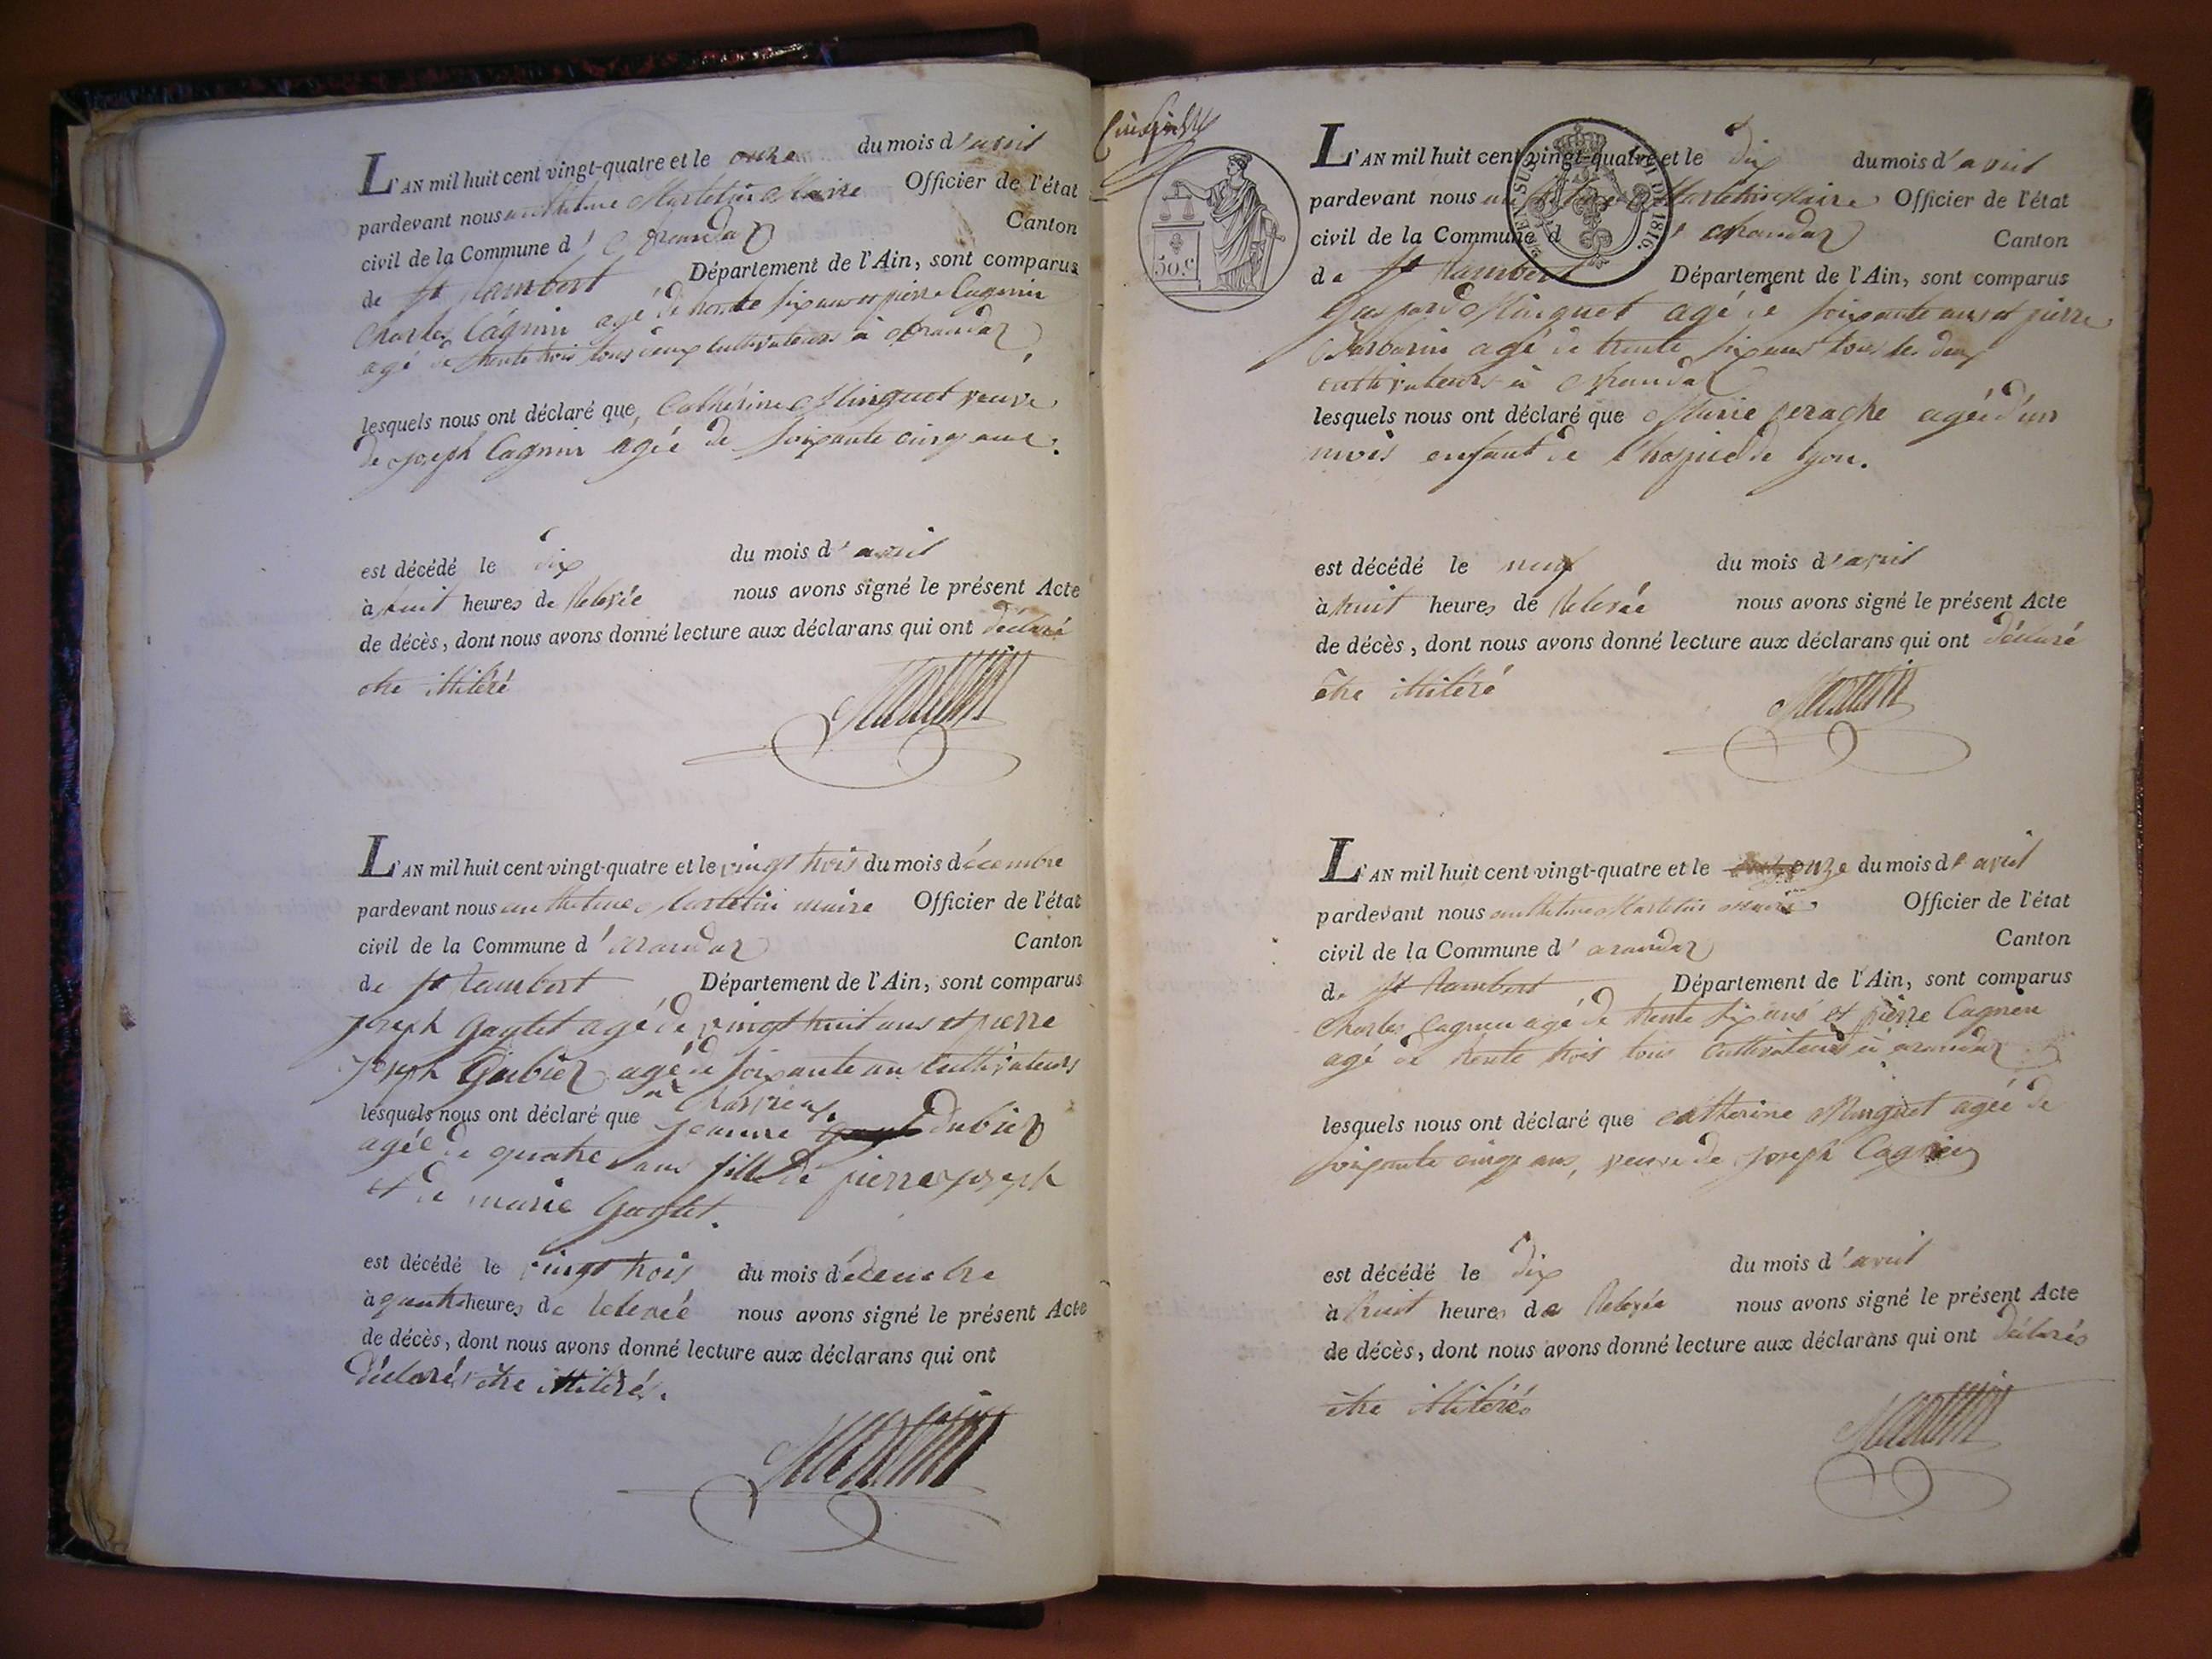 L'AN mil huit cent vingt-quatre et le onze du mois d'avril
pardevant nous anthelme Martelin Maire Officier de l'état
civil de la Commune d' arandaz Canton
de St Rambert Département de l'Ain, sont comparus
Charles Cagnin agé de trente six ans et pierre Cagnin
agé de trente trois tous deux cultivateurs à arandaz
lesquels nous ont déclaré que Catherine Minguet veuve
de joseph Cagnin agée de soixante cinq ans.
est décédé le dix du mois d'avril
à huit heures de Relevée nous avons signé le présent Acte
de décès, dont nous avons donné lecture aux déclarans qui ont déclaré
etre illitéré
L'AN mil huit cent vingt-quatre et le vingt trois du mois décembre
pardevant nous anthelme Martelin maire Officier de l'état
civil de la Commune d'arandaz Canton
de St Rambert Département de l'Ain, sont comparus
joseph Gaytet agé de vingt huit ans et pierre
joseph Dubiez agé de soixante ans Cultivateurs
lesquels nous ont déclaré que jeanne dubiez
agée de quatre ans fille de pierre joseph
et de marie Gaytet.
est décédé le vingt trois du mois décembre
à quatre heures de relevée nous avons signé le présent Acte
de décès, dont nous avons donné lecture aux déclarans qui ont
déclaré etre illitérés.
50.c
LOI DE 1816.
L'AN mil huit cent vingt-quatre et le dix du mois d'avril
pardevant nous anthelme Martelin Maire Officier de l'état
civil de la Commune d' arandaz Canton
de St Rambert Département de l'Ain, sont comparus
Gaspard Minguet agé de soixante ans et pierre
Barbarin agé de trente six ans tous les deux
cultivateurs à arandaz
lesquels nous ont déclaré que Marie perache agée d'un
mois enfant de l'hospice de lyon.
est décédé le neuf du mois d'avril
à huit heures de Relevée nous avons signé le présent Acte
de décès, dont nous avons donné lecture aux déclarans qui ont déclaré
être illitéré
L'AN mil huit cent vingt-quatre et le onze du mois d'avril
pardevant nous anthelme Martelin maire Officier de l'état
civil de la Commune d' arandaz Canton
de St Rambert Département de l'Ain, sont comparus
Charles Cagnin agé de trente six ans et pierre Cagnin
agé de trente trois tous Cultivateurs à arandaz
lesquels nous ont déclaré que catherine Minguet agée de
soixante cinq ans, veuve de joseph Cagnin
est décédé le dix du mois d'avril
à huit heures de Relevée nous avons signé le présent Acte
de décès, dont nous avons donné lecture aux déclarans qui ont déclarés
être illitérés